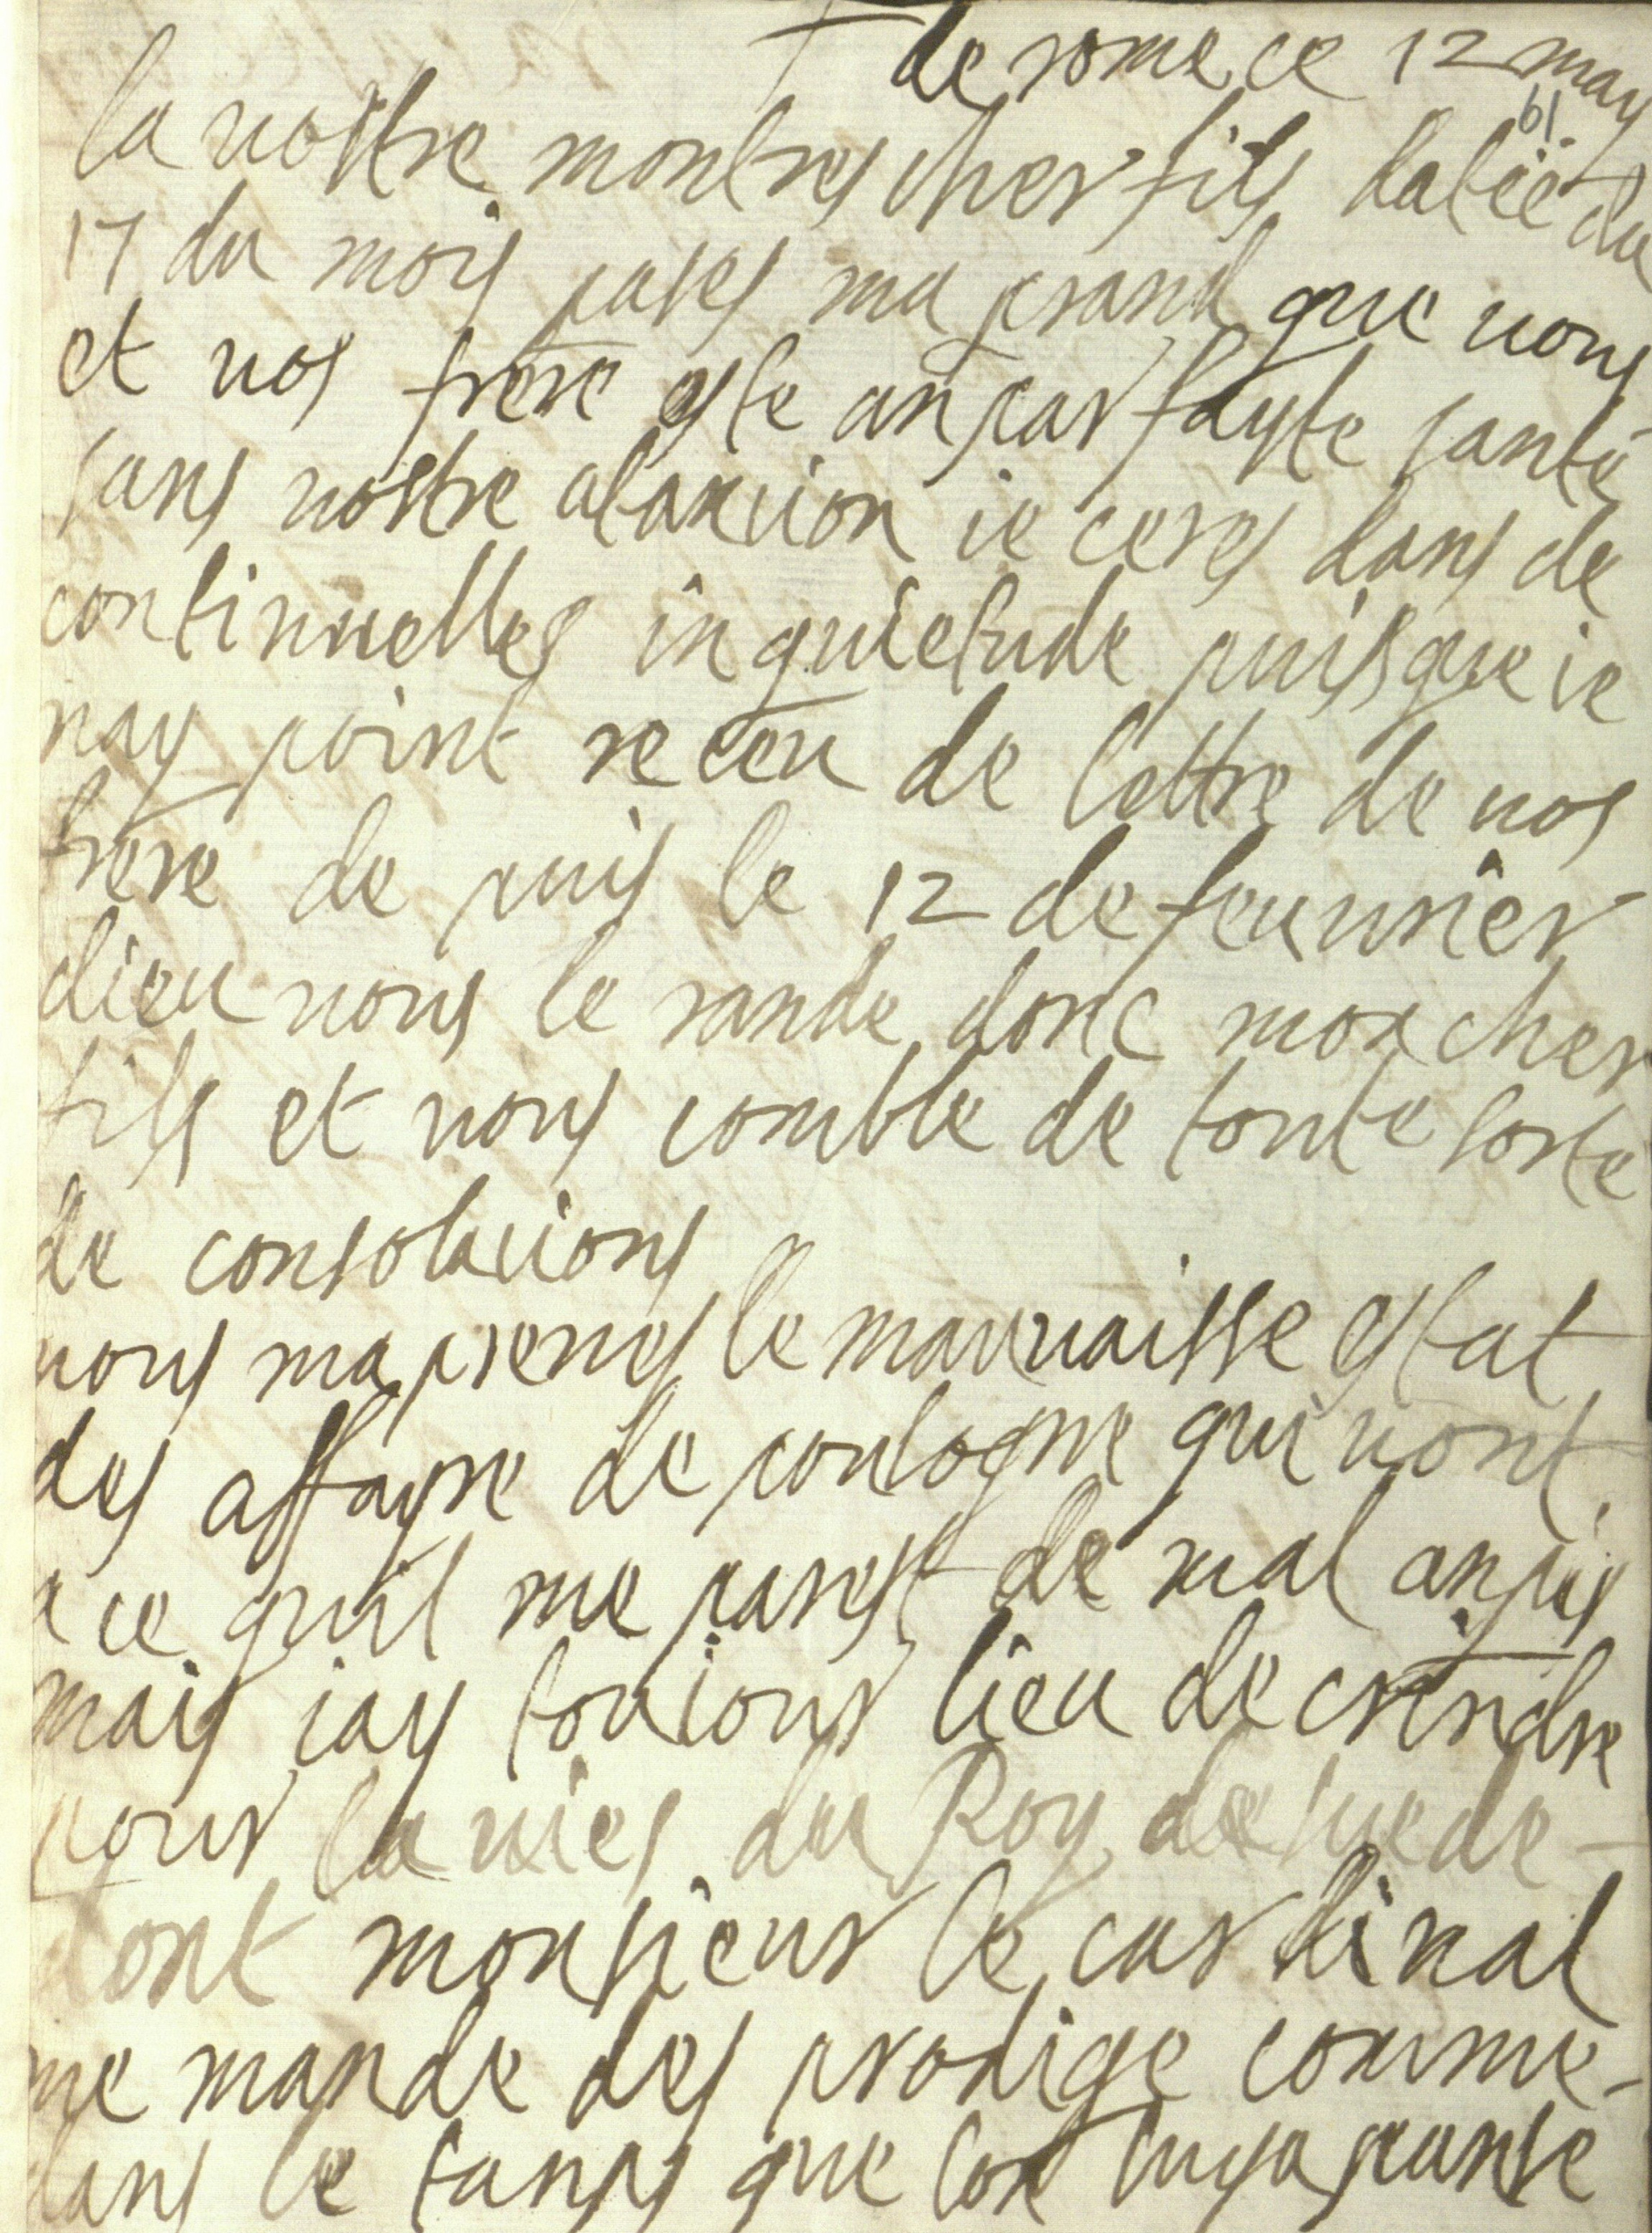 de rome ce 12 may
61
la vostre mon tres cher fils datëe du
17 du mois pases ma prand que vous
et vos frere este an parfayte santé
sans vostre atanxion ie ceres dans de
continuelles inquietude puisque ie
nay point receu de lettre de vos
frere de puis le 12 de feuvrier
dieu vous le rande donc mon cher
fils et vous comble de toute sorte
de consolacions
vous maprenes le mauvaisse estat
des affayre de poulogne qui vont
a ce quil me parest de mal an pis
mais iay touiour lieu de creindre
pour la vies du Roy de suede
dont monsieur le cardinal
me mande des prodige comme
dans le tanps que lon luy a panse